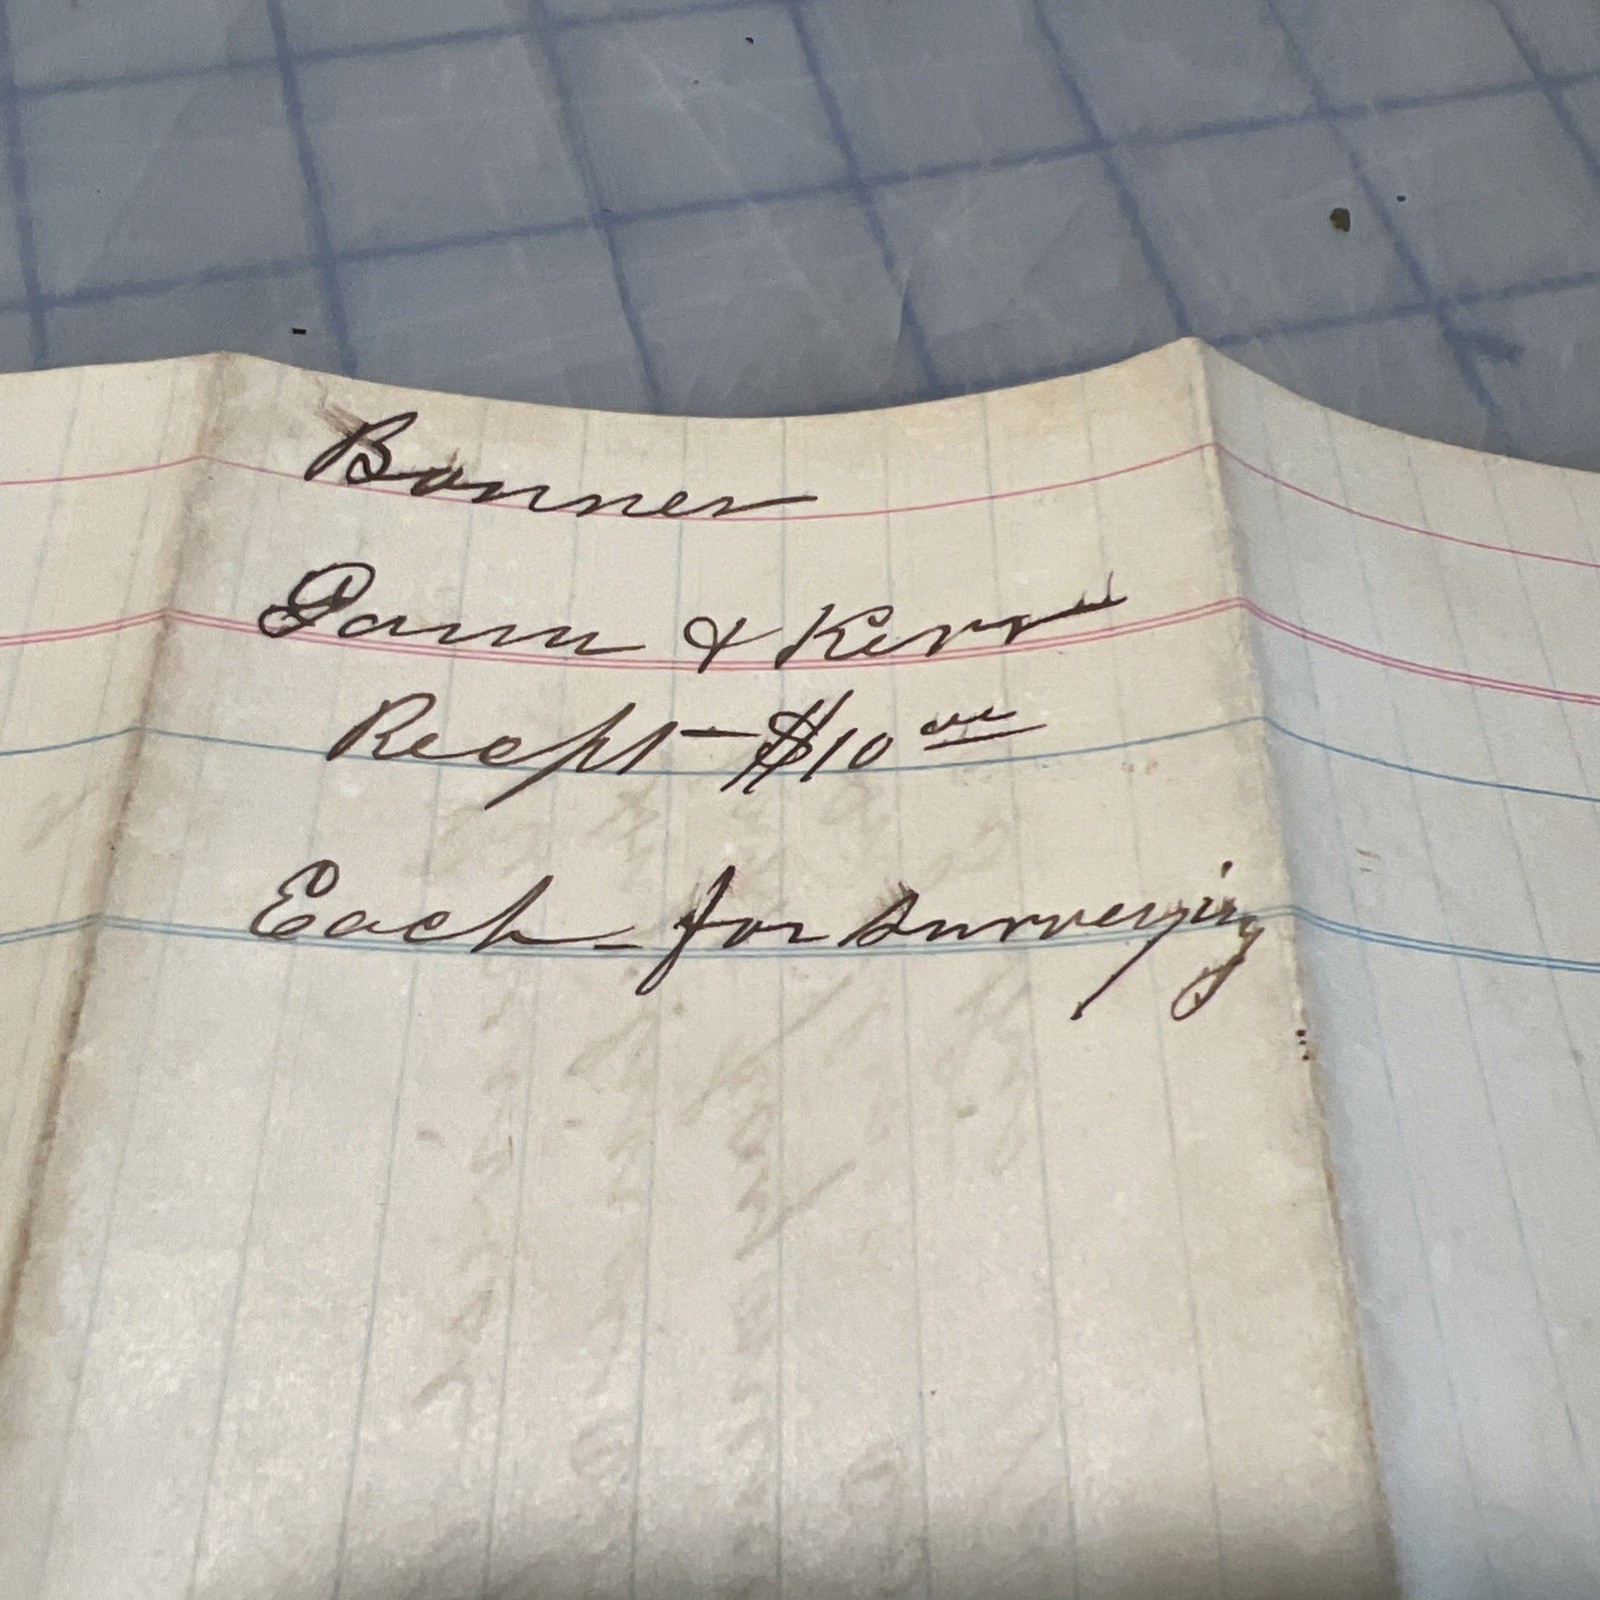 Bonner
Gann & Kerr
Recpt - $10 00
Each - for surveying